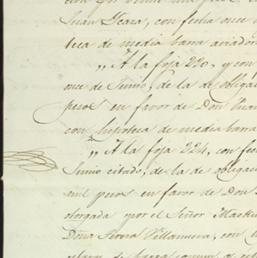 Juan Ycaza, con fecha once d
teca de media barra aviador
„ A la foja 220, y con
once de Junio, de la de obliga
pesos en favor de Don Juan
con hipoteca de media barra
„ A la foja 224, con fec
Junio citado, de la de obligac
mil pesos en favor de Don
otorgada por el Señor Mackin
Doña Teresa Villanueva, con